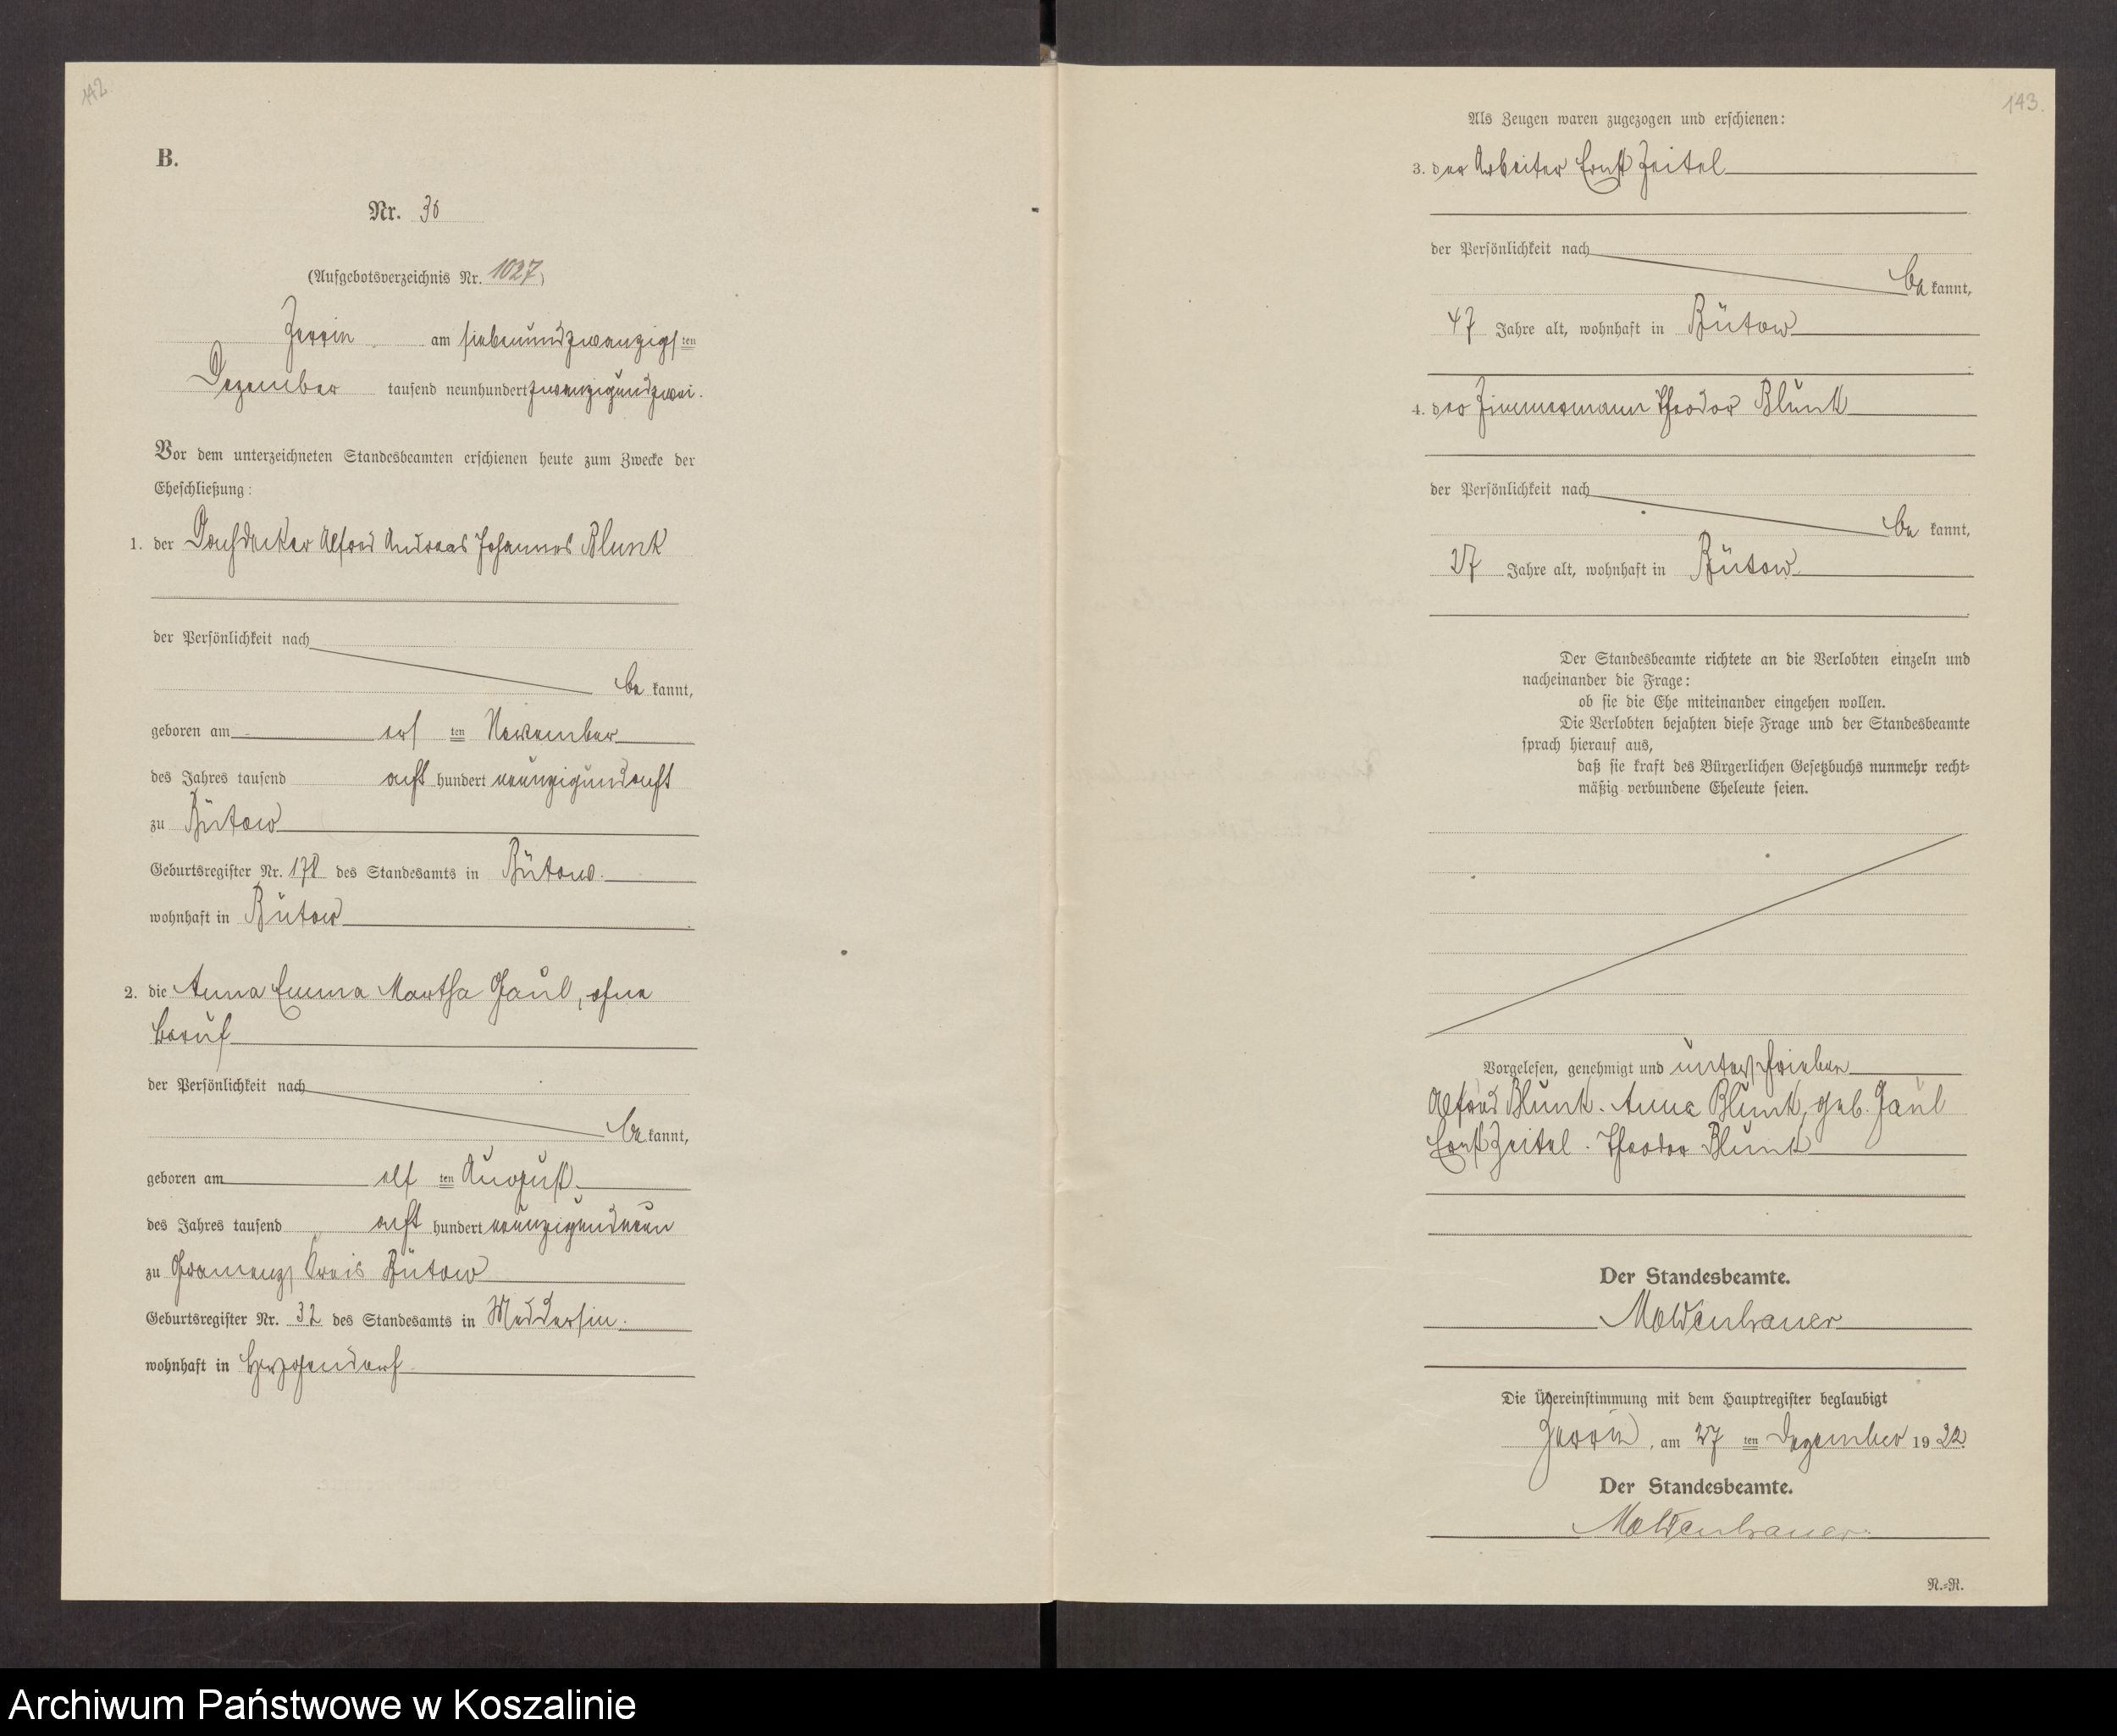 142
B.
Nr. 36
(Aufgebotsverzeichnis Nr. 1027)
Zerrin am siebenundzwanzigsten
Dezember tausend neunhundert zwanzigundzwei.
Vor dem unterzeichneten Standesbeamten erschienen heute zum Zwecke der
Eheschließung:
1. der Dachdecker Alfred Andreas Johannes Blunk
der Persönlichkeit nach
be kannt,
geboren am ers ten November
des Jahres tausend acht hundert neunzigundacht
zu Bütow
Geburtsregister Nr. 178 des Standesamts in Bütow.
wohnhaft in Bütow
2. die Anna Emma Martha Gaul, ohne
Beruf
der Persönlichkeit nach
be kannt,
geboren am elf ten August
des Jahres tausend acht hundert neunzigundneun
zu Gramenz, Kreis Bütow
Geburtsregister Nr. 32 des Standesamts in Meddersin.
wohnhaft in
143.
Als Zeugen waren zugezogen und erschienen:
3. der Arbeiter Ernst Zeitel
der Persönlichkeit nach
be kannt,
47 Jahre alt, wohnhaft in Bütow
4. der Zimmermann Theodor Blunk
der Persönlichkeit nach
be kannt,
27 Jahre alt, wohnhaft in Bütow
Der Standesbeamte richtete an die Verlobten einzeln und
nacheinander die Frage:
ob sie die Ehe miteinander eingehen wollen.
Die Verlobten bejahten diese Frage und der Standesbeamte
sprach hierauf aus,
daß sie kraft des Bürgerlichen Gesetzbuchs nunmehr recht-
mäßig verbundene Eheleute seien.
Vorgelesen, genehmigt und unterschrieben
Alfred Blunk. Anna Blunk, geb. Gaul
Ernst Zeitel. Theodor Blunk
Der Standesbeamte.
Moldenhauer
Die Übereinstimmung mit dem Hauptregister beglaubigt
Zerrin, am 27 ten Dezember 1922
Der Standesbeamte.
Moldenhauer.
N.-R.
Archiwum Państwowe w Koszalinie